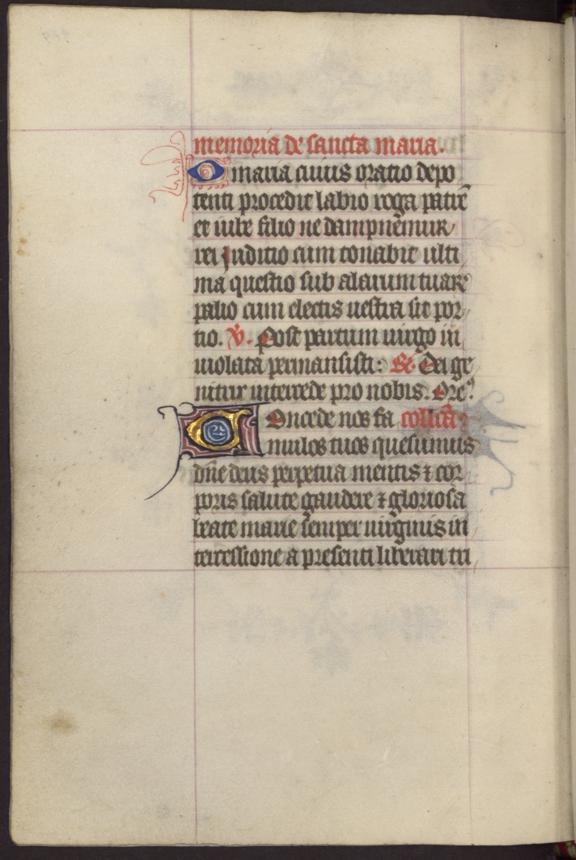 memoria de sancta maria.
O maria cuius oratio depo
tenti procedit labio roga patrē
et iube filio ne dampnemur
rei Juditio cum conabit ulti
ma questio sub alarum tuarꝝ
palio cum electis uestra sit por
tio. V. Post partum uirgo in
uiolata permansisti: R. Dei ge
nitrix intercede pro nobis. Ore.
Concede nos fa collecta
mulos tuos quesumus
dn̄e deus perpetua mentis ⁊ cor
poris salute gaudere ⁊ gloriosa
beate marie semper uirginis in
tercessione a presenti liberari tri